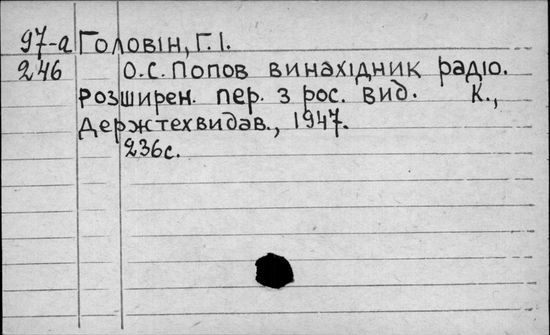 97-а Головін, Г.І.
246 О.С. Попов винахідник радіо.
розширен. пер. з рос. вид. К.,
Держтехвидав., 1947.
236с.